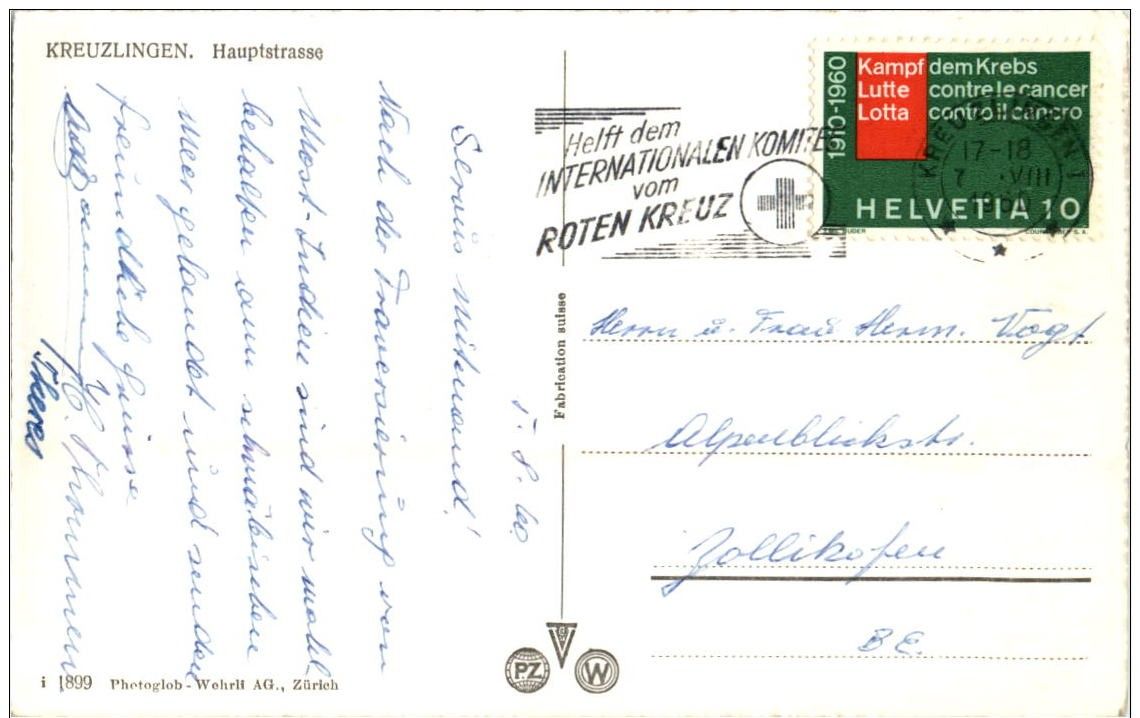 KREUZLINGEN. Hauptstrasse
7. 8. 60
Servus mitnand!
Nach der Traversierung von
Most-Indien sind wir wohl-
behalten am schwäbischen
Meer gelandet und senden
freundliche Grüsse
H. Thommen
Theres
i 1899 Photoglob-Wehrli AG., Zürich
Fabrication suisse
PZ
W
Helft dem
INTERNATIONALEN KOMITEE
vom
ROTEN KREUZ
1910-1960
Kampf dem Krebs
Lutte contre le cancer
Lotta contro il cancro
HELVETIA 10
KREUZLINGEN 1
17-18
7. VIII
1960
Herrn u. Frau Herm. Vogt
Alpenblickstr.
Zollikofen
BE.